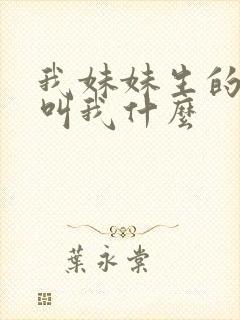 我妹妹生的
叫我什麼
葉永棠